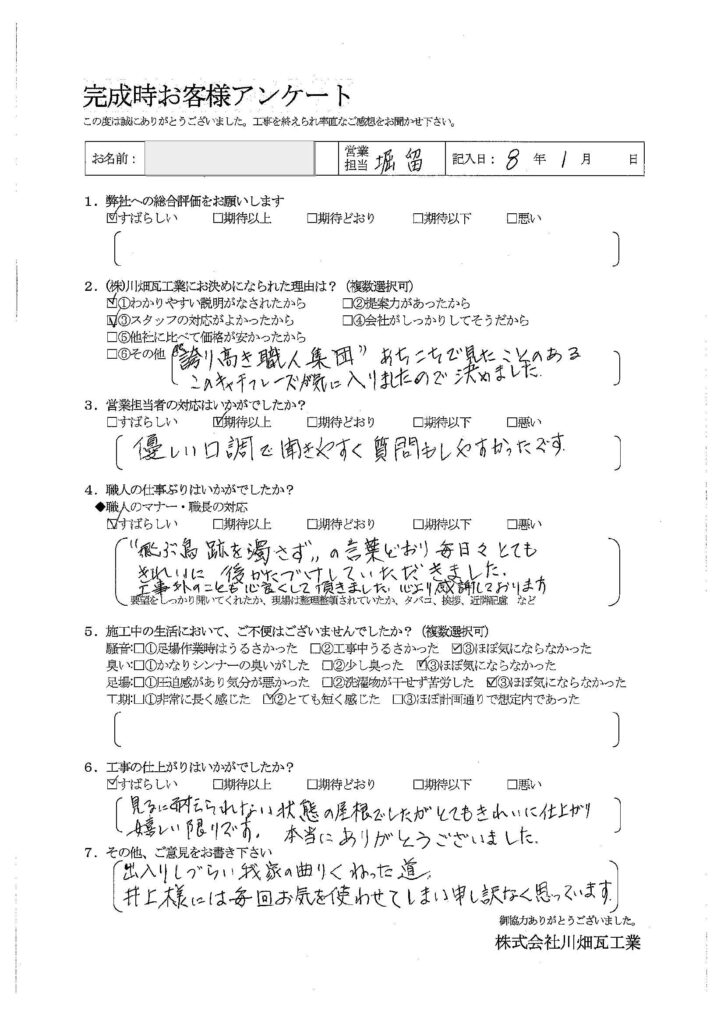 完成時お客様アンケート
この度は誠にありがとうございました。工事を終えられ率直なご感想をお聞かせ下さい。
お名前： 営業担当 堀留 記入日： 8 年 1 月 日
1．弊社への総合評価をお願いします
☑すばらしい □期待以上 □期待どおり □期待以下 □悪い
2．(株)川畑瓦工業にお決めになられた理由は？（複数選択可）
☑①わかりやすい説明がなされたから □②提案力があったから
☑③スタッフの対応がよかったから □④会社がしっかりしてそうだから
□⑤他社に比べて価格が安かったから
□⑥その他 “誇り高き職人集団” あちこちで見たことのある
このキャチフレーズが気に入りましたので決めました.
3．営業担当者の対応はいかがでしたか？
□すばらしい ☑期待以上 □期待どおり □期待以下 □悪い
優しい口調で聞きやすく質問もしやすかったです.
4．職人の仕事ぶりはいかがでしたか？
◆職人のマナー・職長の対応
☑すばらしい □期待以上 □期待どおり □期待以下 □悪い
“飛ぶ鳥跡を濁さず”の言葉どおり毎日々とても
きれいに 後かたづけしていただきました.
工事外のことも心良くして頂きました. 心より感謝しております
要望をしっかり聞いてくれたか、現場は整理整頓されていたか、タバコ、挨拶、近隣配慮 など
5．施工中の生活において、ご不便はございませんでしたか？（複数選択可）
騒音:□①足場作業時はうるさかった □②工事中うるさかった ☑③ほぼ気にならなかった
臭い:□①かなりシンナーの臭いがした □②少し臭った ☑③ほぼ気にならなかった
足場:□①圧迫感があり気分が悪かった □②洗濯物が干せず苦労した ☑③ほぼ気にならなかった
工期:□①非常に長く感じた ☑②とても短く感じた □③ほぼ計画通りで想定内であった
6．工事の仕上がりはいかがでしたか？
☑すばらしい □期待以上 □期待どおり □期待以下 □悪い
見るに耐えられない状態の屋根でしたがとてもきれいに仕上がり
嬉しい限りです。 本当にありがとうございました.
7．その他、ご意見をお書き下さい
出入りしづらい我家の曲りくねった道.
井上様には毎回お気を使わせてしまい申し訳なく思っています.
御協力ありがとうございました。
株式会社川畑瓦工業